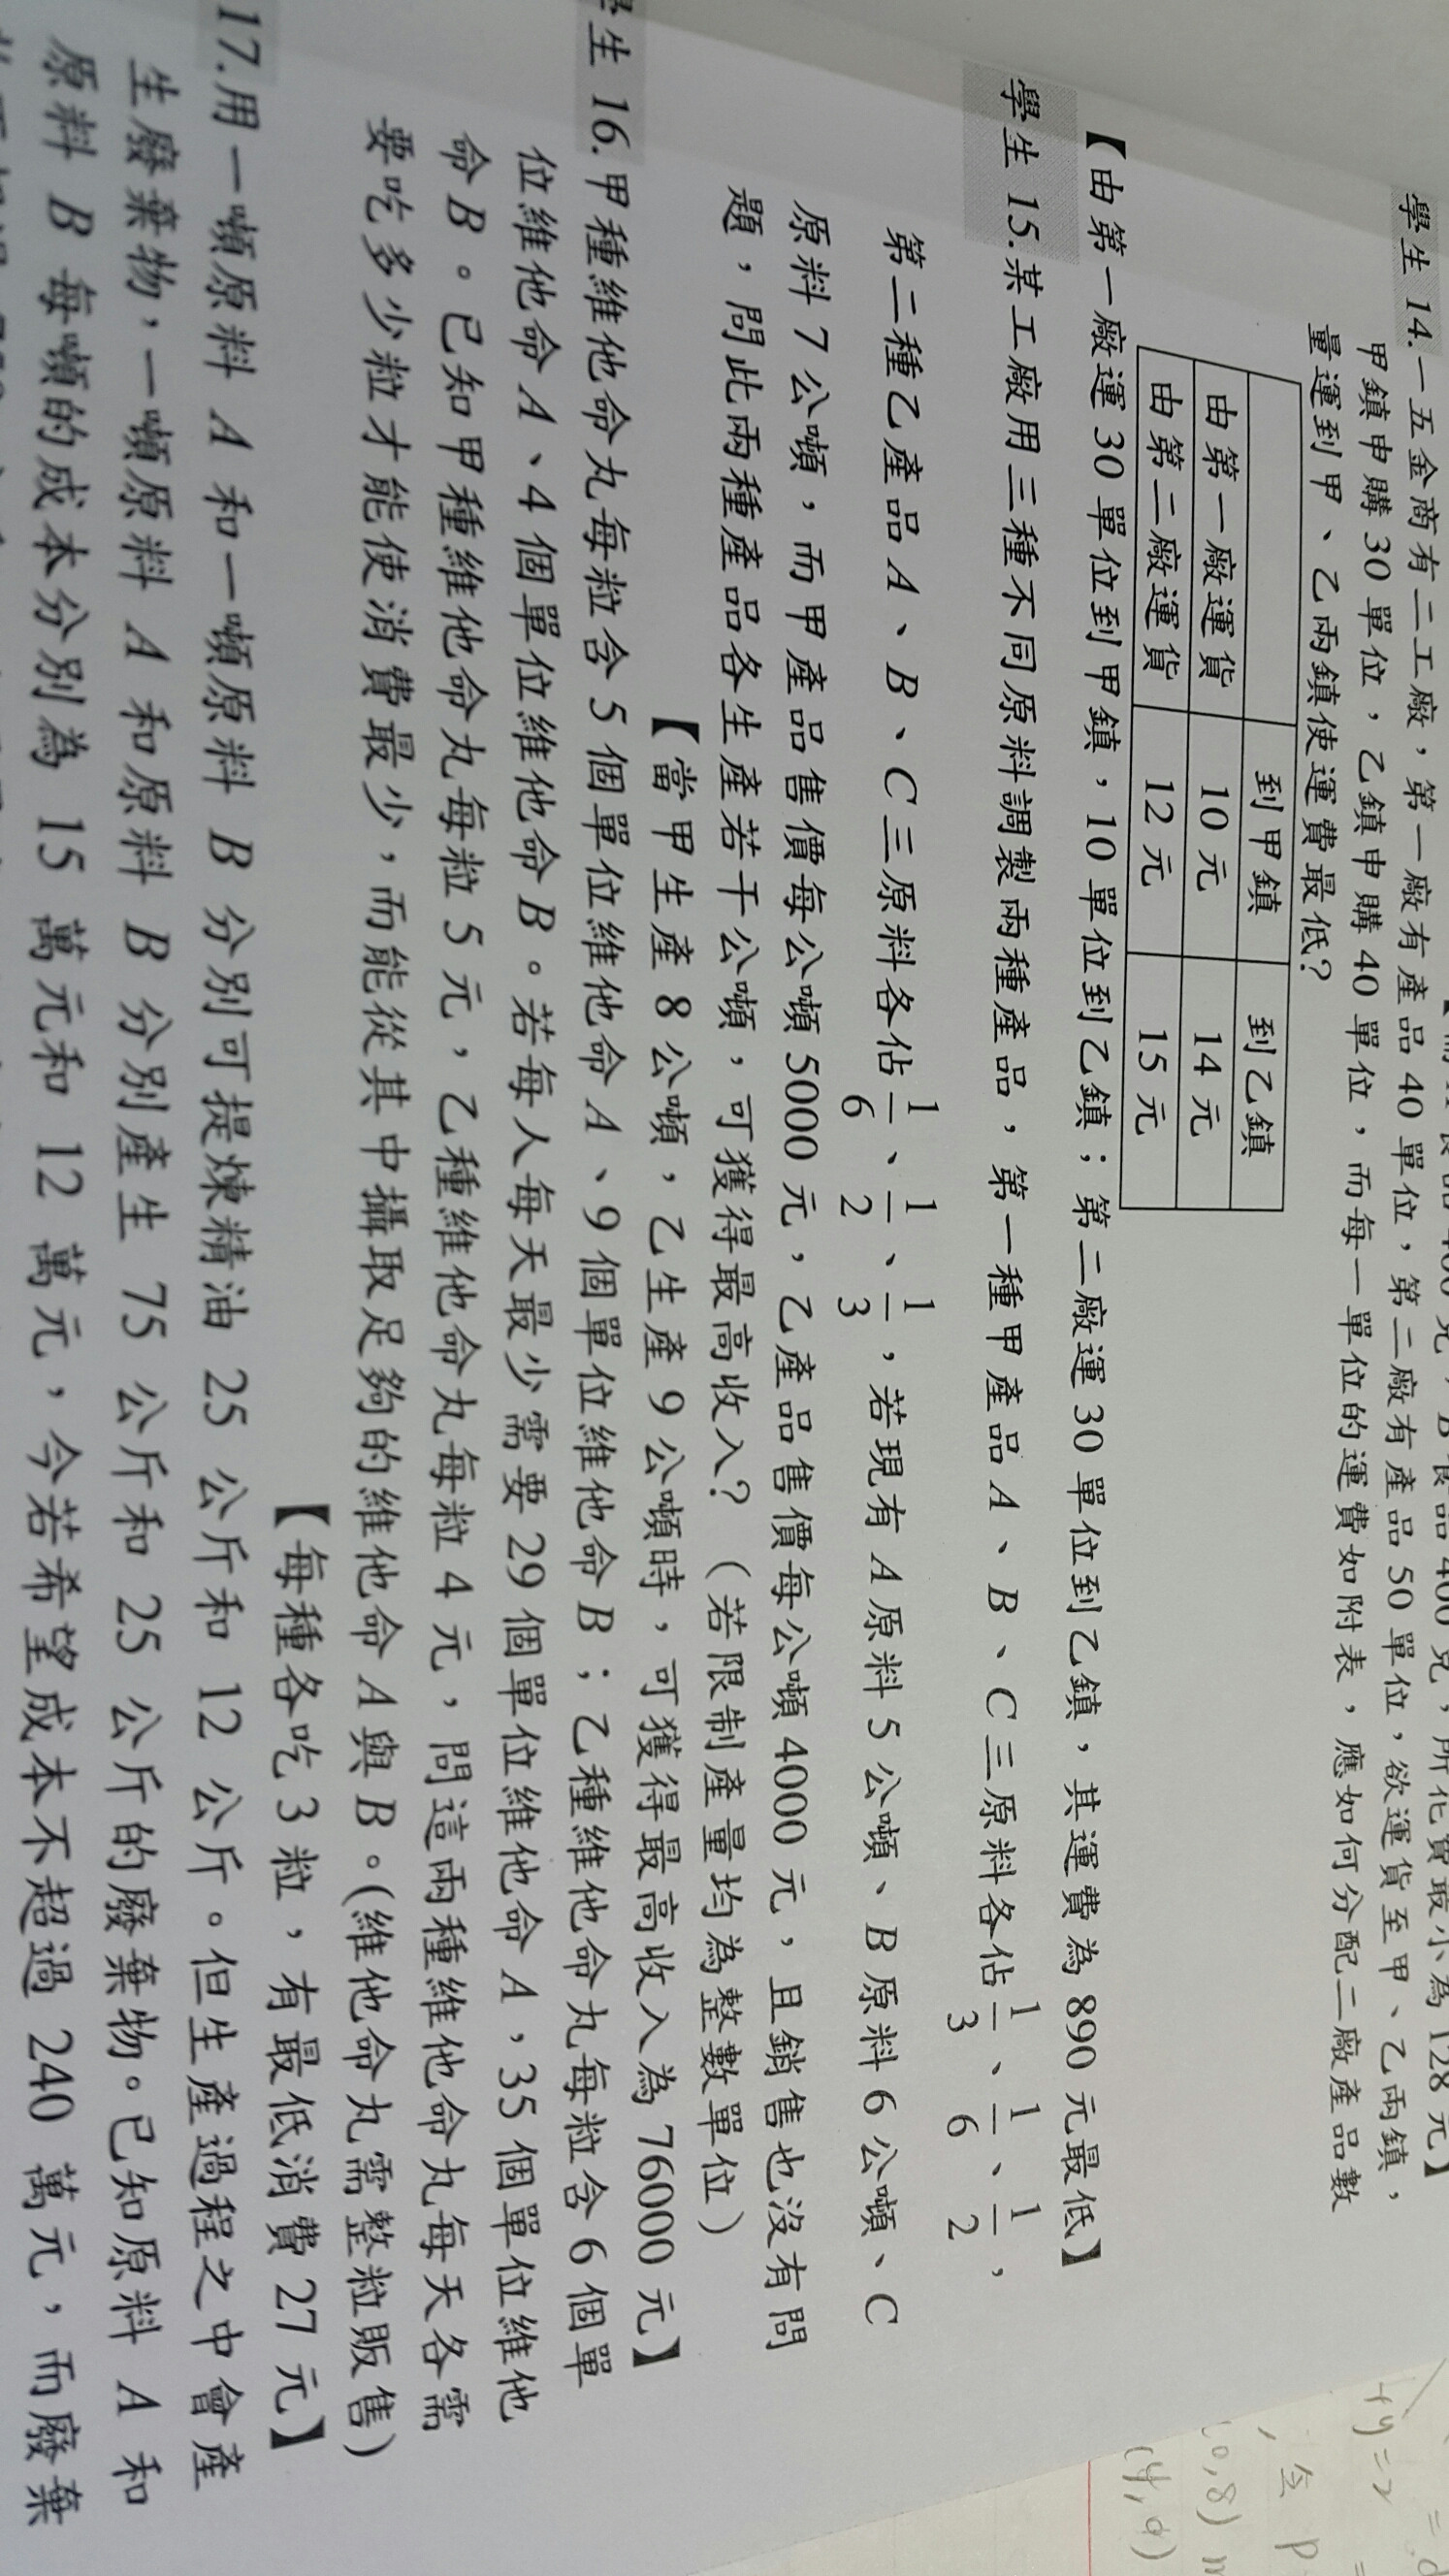 食品400克,所花費最小為128元】
學生 14.一五金商有二工廠,第一廠有產品40單位,第二廠有產品50單位,欲運貨至甲、乙兩鎮,
甲鎮申購30單位,乙鎮申購40單位,而每一單位的運費如附表,應如何分配二廠產品數
量運到甲、乙兩鎮使運費最低?
到甲鎮 到乙鎮
由第一廠運貨 10元 14元
由第二廠運貨 12元 15元
【由第一廠運30單位到甲鎮,10單位到乙鎮;第二廠運30單位到乙鎮,其運費為890元最低】
學生 15.某工廠用三種不同原料調製兩種產品,第一種甲產品A、B、C三原料各佔1/3、1/6、1/2,
第二種乙產品A、B、C三原料各佔1/6、1/2、1/3,若現有A原料5公噸、B原料6公噸、C
原料7公噸,而甲產品售價每公噸5000元,乙產品售價每公噸4000元,且銷售也沒有問
題,問此兩種產品各生產若干公噸,可獲得最高收入?(若限制產量均為整數單位)
【當甲生產8公噸,乙生產9公噸時,可獲得最高收入為76000元】
學生 16.甲種維他命丸每粒含5個單位維他命A、9個單位維他命B;乙種維他命丸每粒含6個單
位維他命A、4個單位維他命B。若每人每天最少需要29個單位維他命A,35個單位維他
命B。已知甲種維他命丸每粒5元,乙種維他命丸每粒4元,問這兩種維他命丸每天各需
要吃多少粒才能使消費最少,而能從其中攝取足夠的維他命A與B。(維他命丸需整粒販售)
【每種各吃3粒,有最低消費27元】
17.用一噸原料A和一噸原料B分別可提煉精油25公斤和12公斤。但生產過程之中會產
生廢棄物,一噸原料A和原料B分別產生75公斤和25公斤的廢棄物。已知原料A和
原料B每噸的成本分別為15萬元和12萬元,今若希望成本不超過240萬元,而廢棄
+y=2
,會P
(0,8)
(4,0)